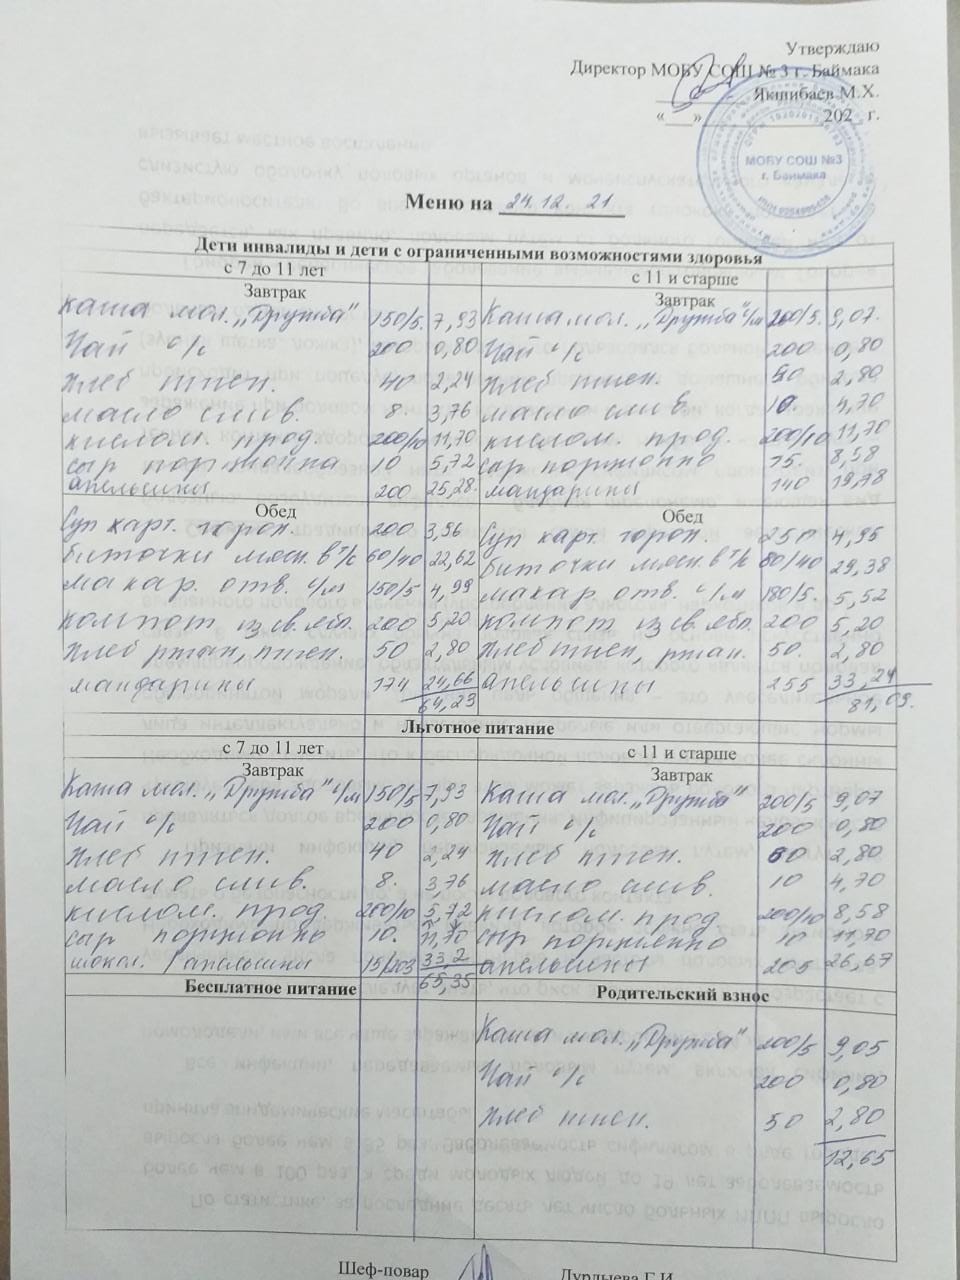 Утверждаю
Директор МОБУ СОШ № 3 г. Баймака
Якшибаев М.Х.
«___»____________ 202 г.
МОБУ СОШ №3
г. Баймака
Меню на 24.12. 21
Дети инвалиды и дети с ограниченными возможностями здоровья
с 7 до 11 лет
с 11 и старше
Завтрак
Завтрак
Каша мол. „Дружба" 150/5. 7,93
Каша мол. „Дружба" с/м 200/5. 9,07.
Чай с/с 200 0,80
Чай с/с 200 0,80
Хлеб пшен. 40 2,24
Хлеб пшен. 50 2,80
масло слив. 8 3,76
масло слив. 10 4,70
кислом. прод. 200/10 11,70
кислом. прод. 200/10 11,70
сыр порционно 10 5,72
сыр порционно 15. 8,58
апельсины 200 25,28.
мандарины 140 19,78
Обед
Обед
Суп карт. горох. 200 3,96
Суп карт. горох. 250 4,95
биточки мясн. в т/с 60/40 22,62
биточки мясн. в т/с 80/40 29,38
макар. отв. с/м 150/5 4,99
макар. отв. с/м 180/5. 5,52
компот из св. ябл. 200 5,20
компот из св. ябл. 200 5,20
Хлеб ржан, пшен. 50 2,80
Хлеб пшен, ржан. 50. 2,80
мандарины 174 24,66
апельсины 255 33,24
64,23
81,09.
Льготное питание
с 7 до 11 лет
с 11 и старше
Завтрак
Завтрак
Каша мол. „Дружба" с/м 150/5 7,93
Каша мол. „Дружба" 200/5 9,07
Чай с/с 200 0,80
Чай с/с 200 0,80
Хлеб пшен. 40 2,24
Хлеб пшен. 50 2,80
масло слив. 8. 3,76
масло слив. 10 4,70
кислом. прод. 200/10 5,72
кислом. прод 200/10 8,58
сыр порционно 10. 11,70
сыр порционно 10 11,70
шокол. / апельсины 15/203 33,2
апельсины 205 26,67
65,35
Бесплатное питание
Родительский взнос
Каша мол. „Дружба" 200/5 9,05
Чай с/с 200 0,80
Хлеб пшен. 50 2,80
12,65
Шеф-повар
Дурдыева Г.И.